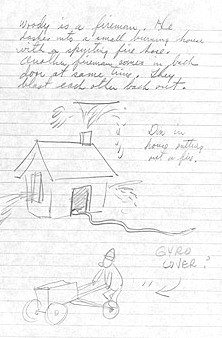 Woody is a fireman. He
dashes into a small burning house
with a spurting fire hose.
Another fireman comes in back
door at same time. They
blast each other back out.
Dog in
house sitting
next a fire.
GYRO
LOVER?